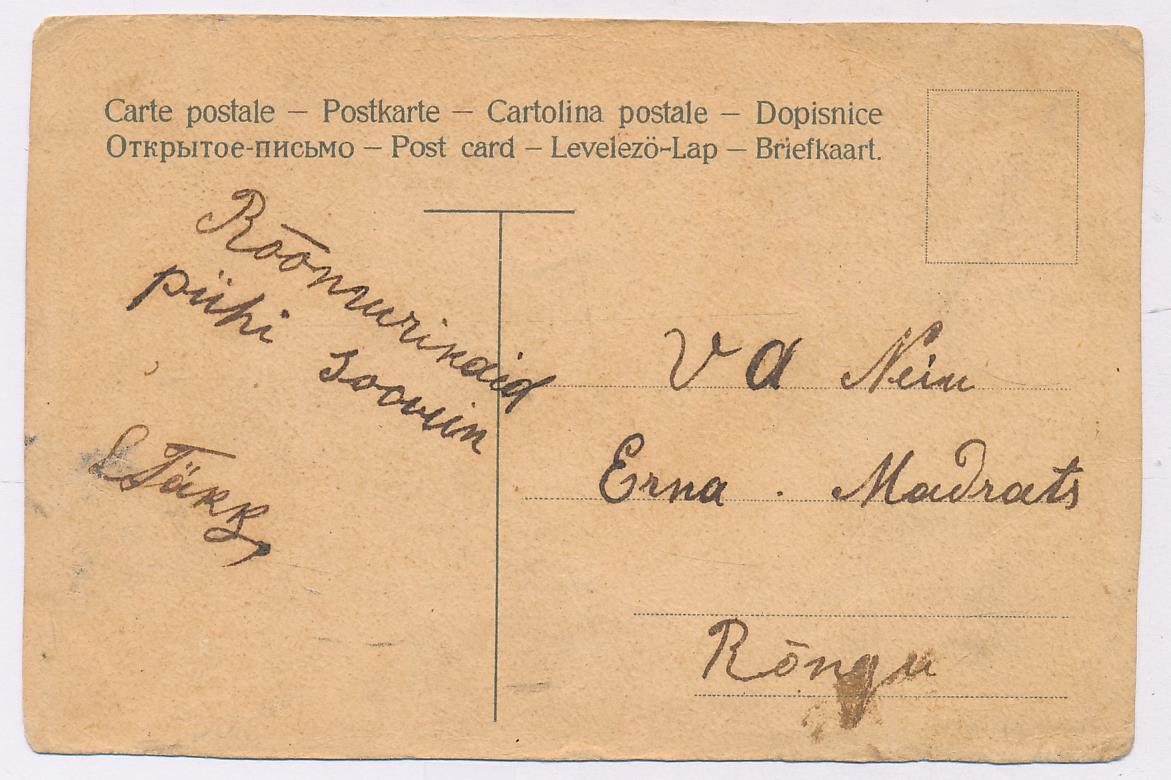 Carte postale – Postkarte – Cartolina postale – Dopisnice
Открытое-письмо – Post card – Levelezö-Lap – Briefkaart.
Rõõmurikaid
pühi soovin
L Täkk,
V a Neiu
Erna . Madrats
Rõngu